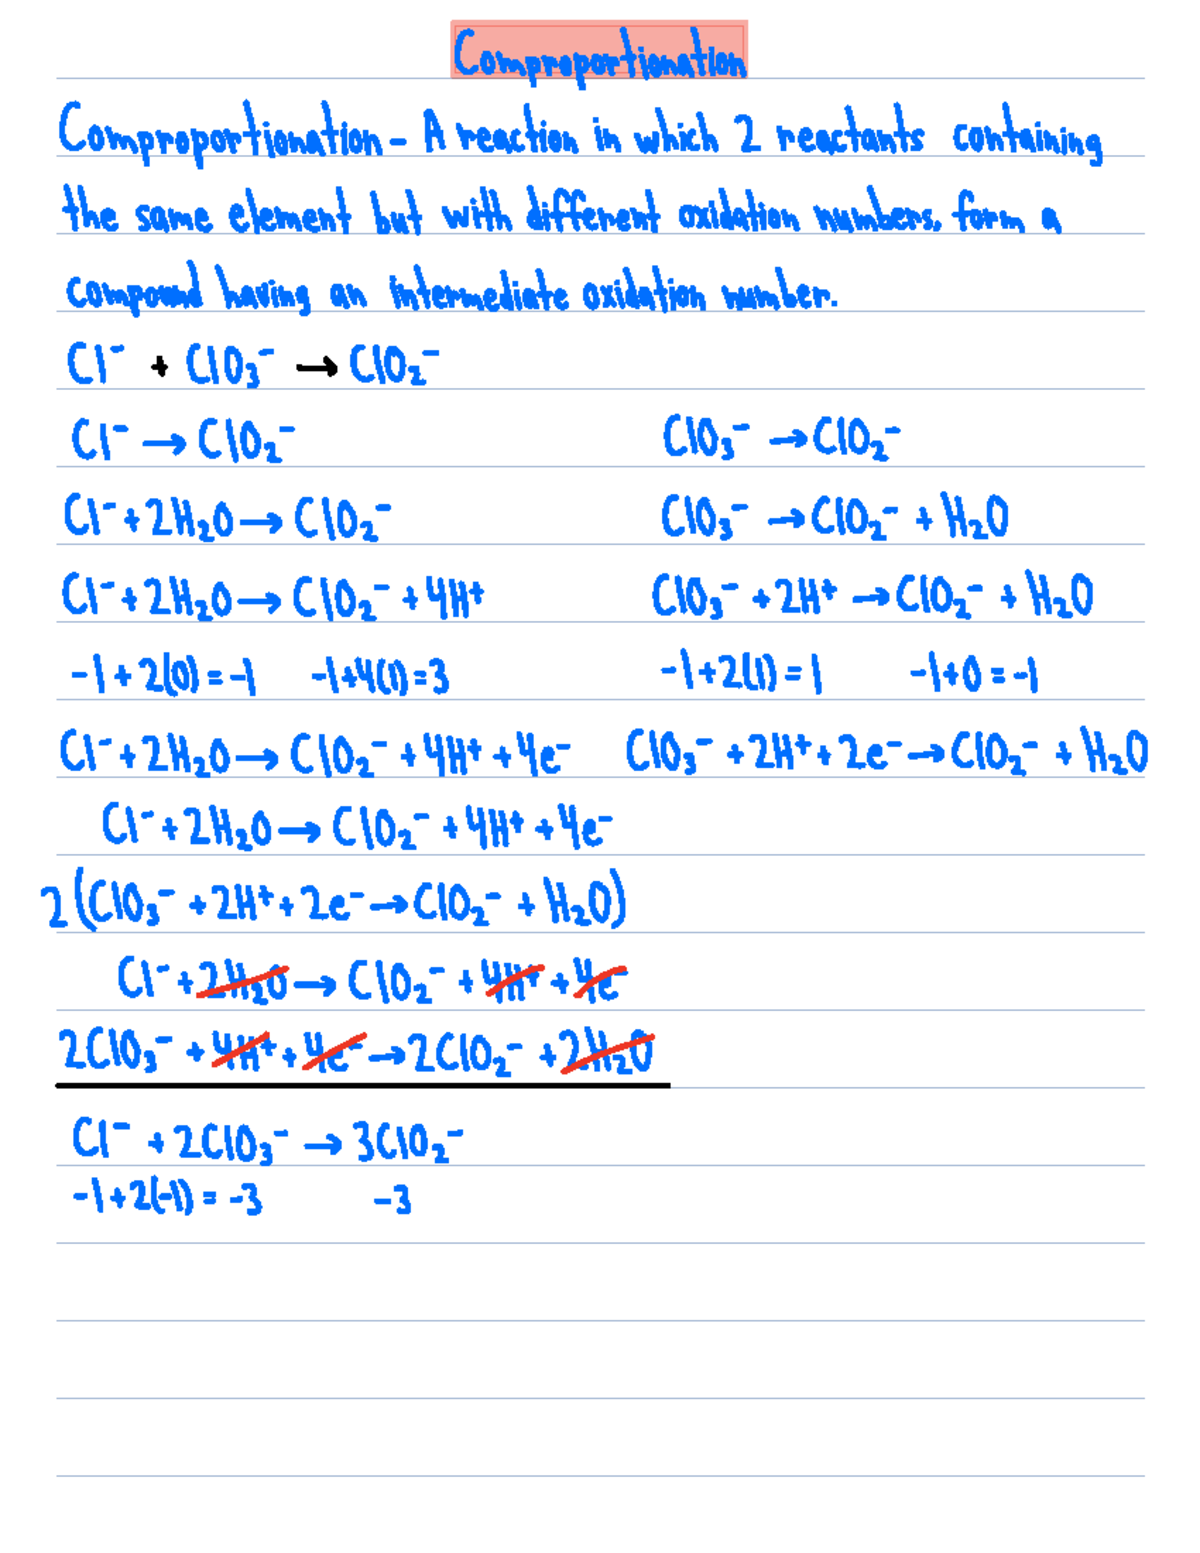 Comproportionation
Comproportionation - A reaction in which 2 reactants containing
the same element but with different oxidation numbers, form a
compound having an intermediate oxidation number.
Cl⁻ + ClO₃⁻ → ClO₂⁻
Cl⁻ → ClO₂⁻ ClO₃⁻ → ClO₂⁻
Cl⁻ + 2H₂O → ClO₂⁻ ClO₃⁻ → ClO₂⁻ + H₂O
Cl⁻ + 2H₂O → ClO₂⁻ + 4H⁺ ClO₃⁻ + 2H⁺ → ClO₂⁻ + H₂O
-1 + 2(0) = -1 -1+4(1)=3 -1+2(1)=1 -1+0=-1
Cl⁻ + 2H₂O → ClO₂⁻ + 4H⁺ + 4e⁻ ClO₃⁻ + 2H⁺ + 2e⁻ → ClO₂⁻ + H₂O
Cl⁻ + 2H₂O → ClO₂⁻ + 4H⁺ + 4e⁻
2(ClO₃⁻ + 2H⁺ + 2e⁻ → ClO₂⁻ + H₂O)
Cl⁻ + 2H₂O → ClO₂⁻ + 4H⁺ + 4e⁻
2ClO₃⁻ + 4H⁺ + 4e⁻ → 2ClO₂⁻ + 2H₂O
Cl⁻ + 2ClO₃⁻ → 3ClO₂⁻
-1+2(-1) = -3 -3